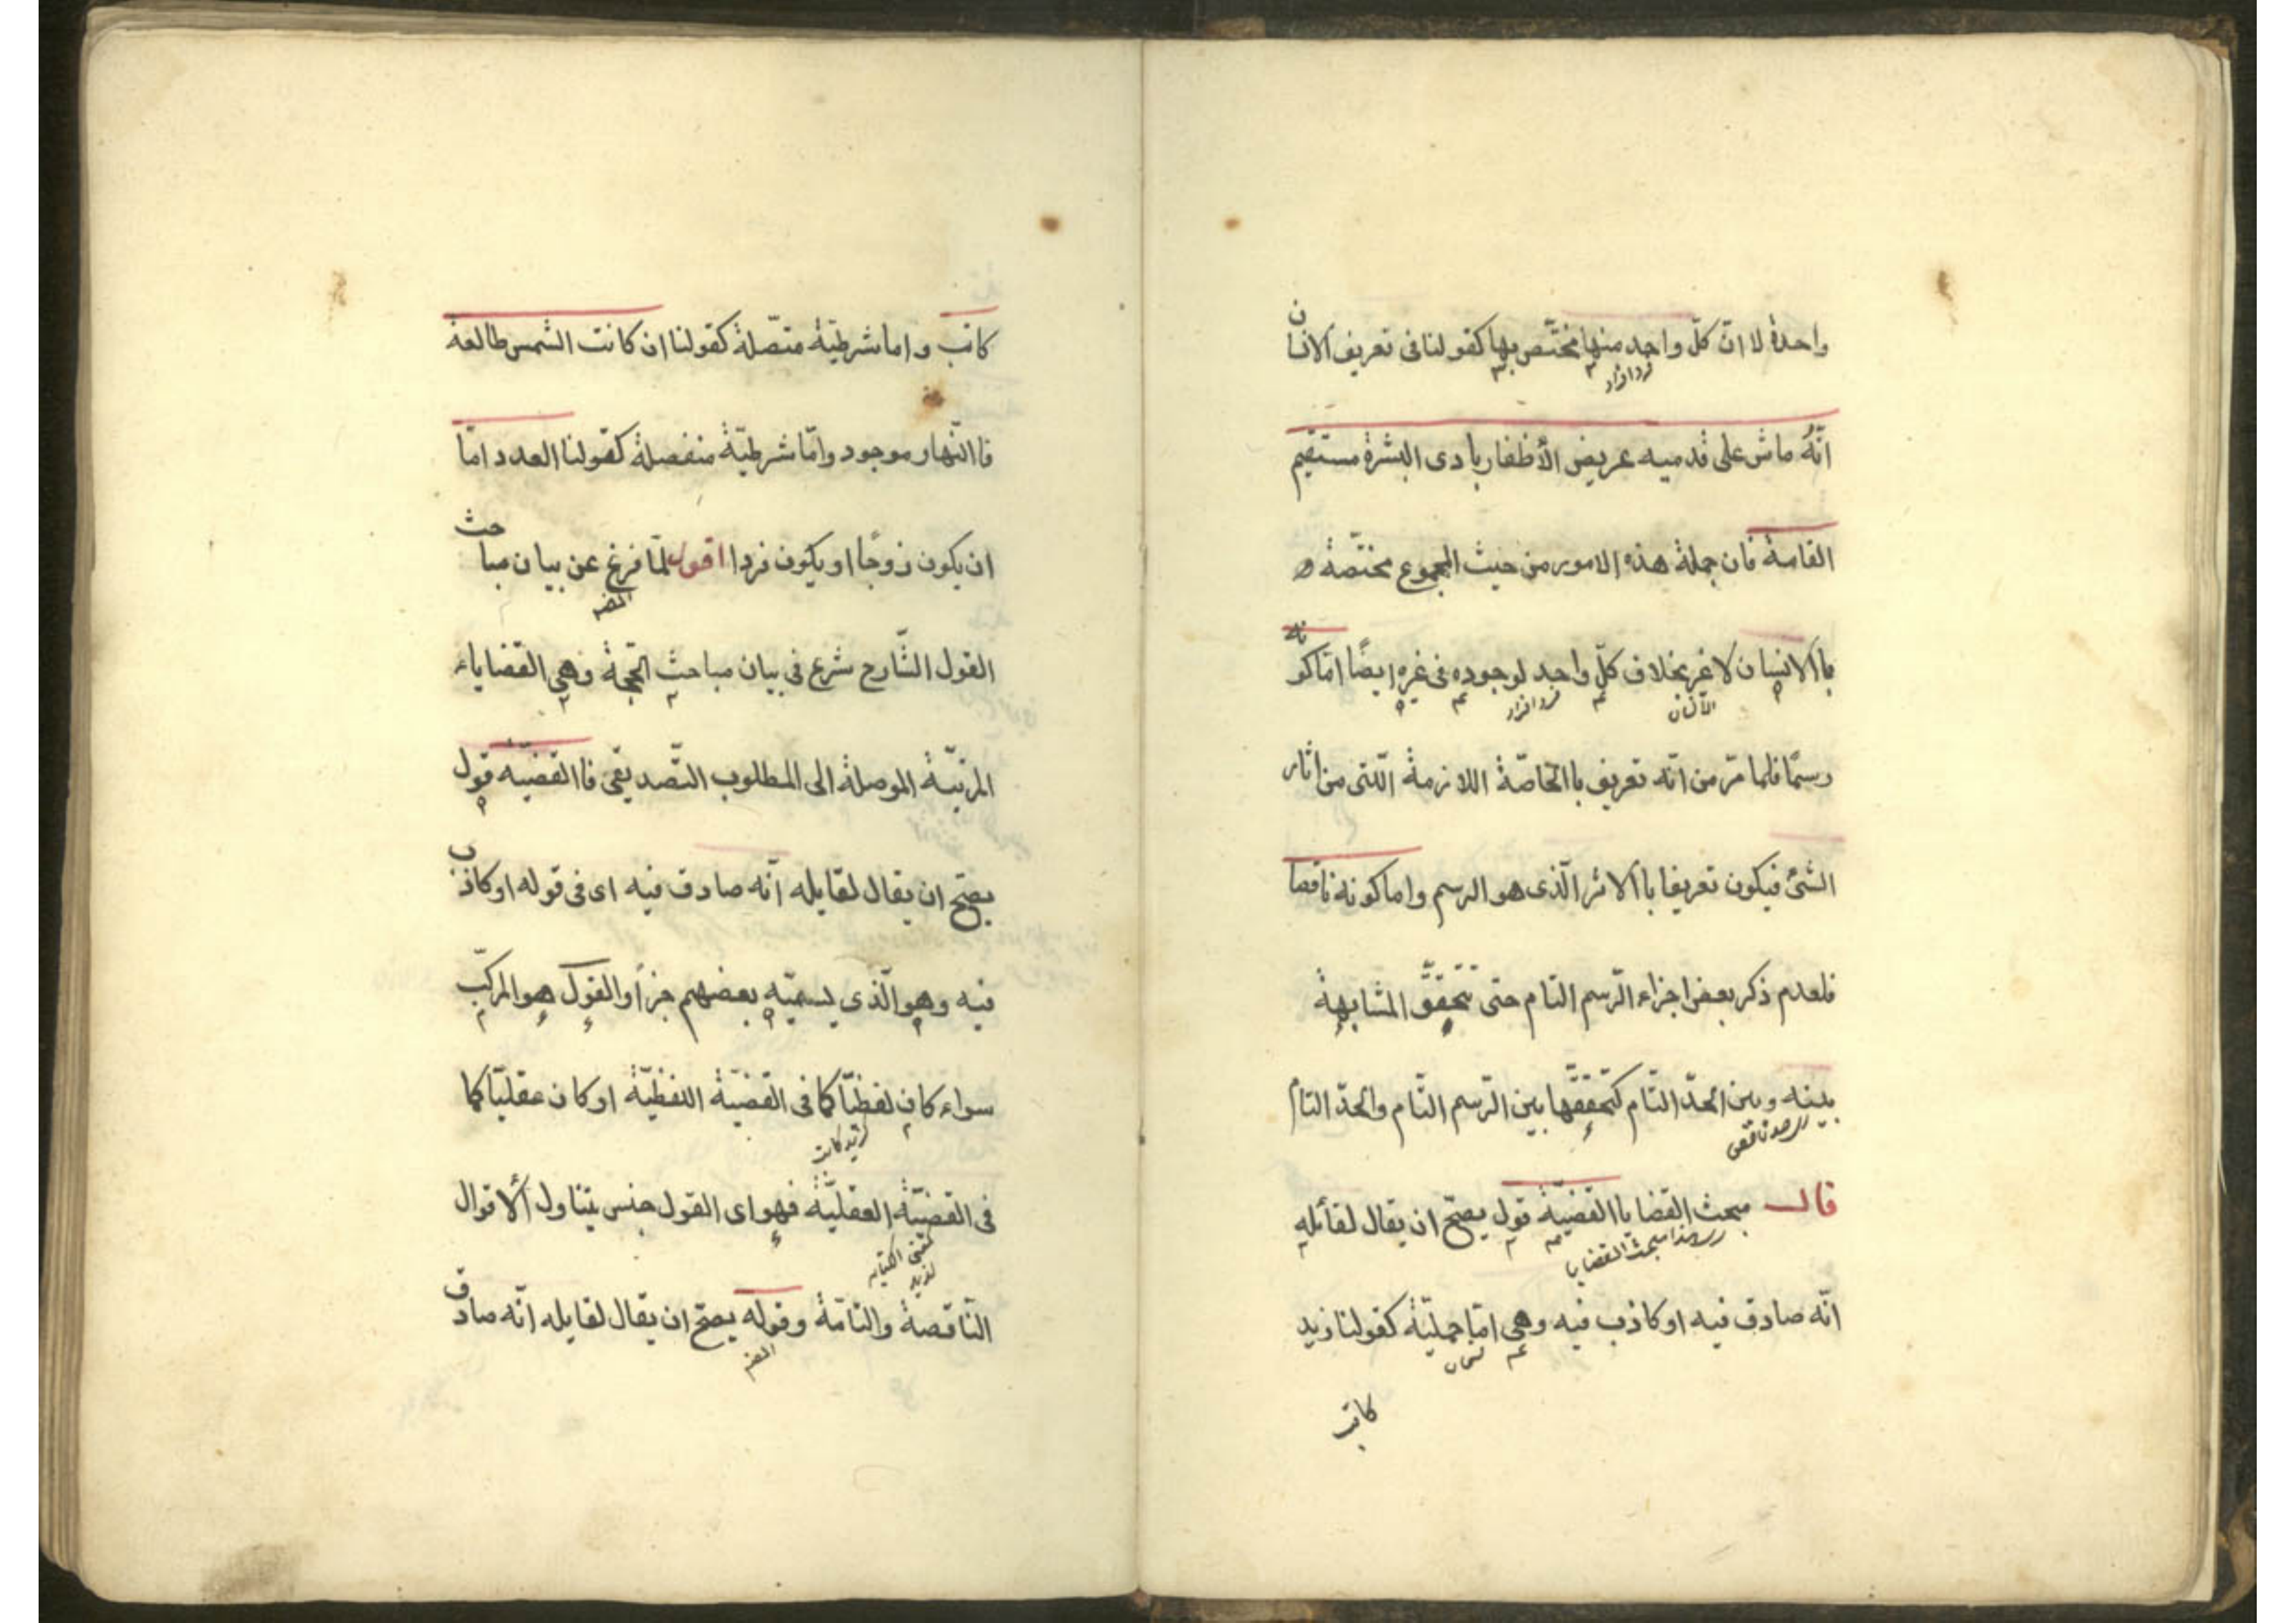 واحدة لا انّ كلّ واحد منها مختّص بها كقولنا فى تعريف الانسان
فرد افراد
انّه ماش على قدميه عريض الأظفار بادى البشرة مستقيم
القامة فان جملة هذه الامور من حيث المجموع مختصّة
باالانسان لا غير بخلاف كلّ واحد لوجوده فى غيره ايضًا امّا كونه
فرد افراد
رسمًا فلما مرّ من انّه تعريف باالخاصّة اللازمة الّلتى من اثار
الشئ فيكون تعريفا باالاثر الّذى هو الرسم واما كونه ناقصا
فلعدم ذكر بعض اجزاء الرّسم التام حتى تتحقّق المشابهة
بينه وبين الحدّ التّام كتحقّقها بين الرّسم التّام والحدّ التام
قال مبحث القضايا القضيّة قول يصحّ ان يقال لقائله
هذا مبحث القضايا
انّه صادق فيه او كاذب فيه وهى امّا حمليّة كقولنا زيد
كاتب
كاتب واما شرطيّة متّصلة كقولنا ان كانت الشمس طالعة
فاالنّهار موجود وامّا شرطيّة منفصلة كقولنا العدد امّا
ان يكون زوجًا او يكون فردا اقول لمّا فرغ عن بيان مباحث
المص
القول الشّارح شرع فى بيان مباحث الحجة وهى القضاياء
المرتبّة الموصلة الى المطلوب التّصديقى فاالقضيّه قول
يصحّ ان يقال لقايله انّه صادق فيه اى فى قوله او كاذب
فيه وهو الّذى يسميّه بعضهم خبرًا والقول هو المركّب
سواء كان لفظيّا كما فى القضيّة اللفظيّة او كان عقليّا كما
زيد كاتب
فى القضيّة العقليّة فهو اى القول جنس يتناول الاقوال
النّاقصة والتامّة وقوله يصحّ ان يقال لقايله انّه صادق
المص